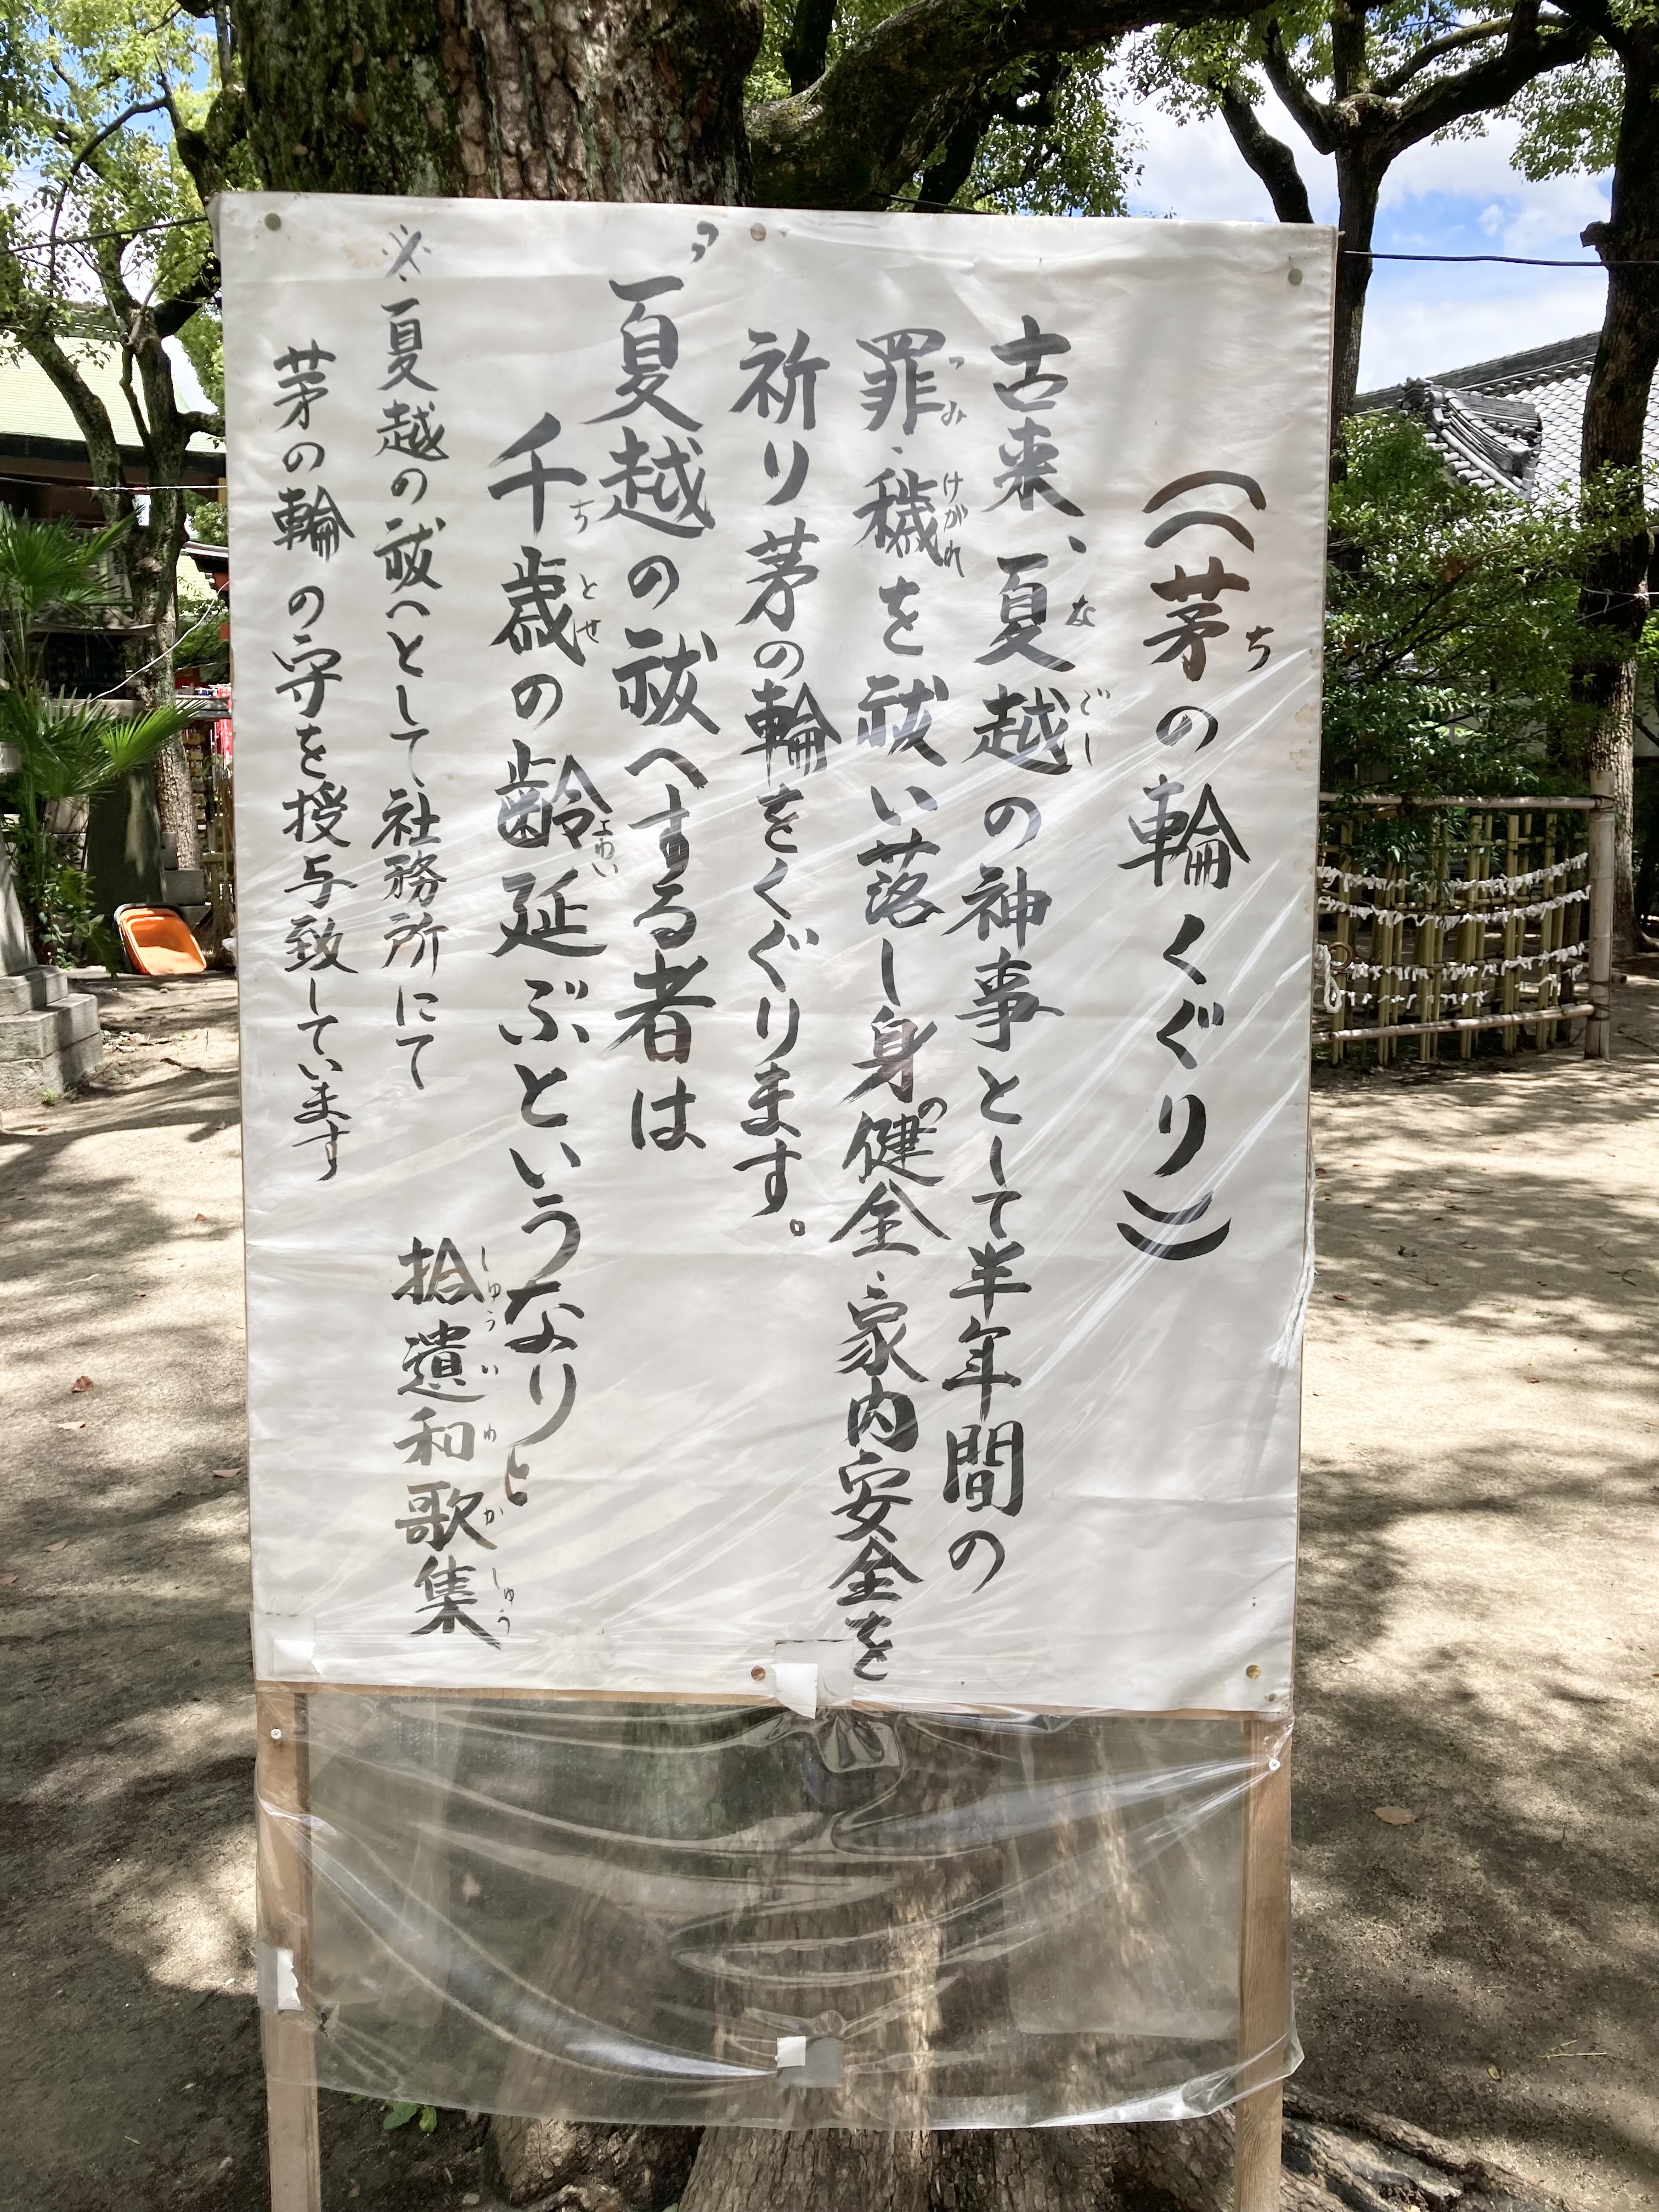 （茅の輪くぐり）
古来、夏越の神事として半年間の
罪・穢を祓い落し身の健全・家内安全を
祈り茅の輪をくぐります。
夏越の祓へする者は
千歳の齢延ぶというなりと
拾遺和歌集
※夏越の祓へとして、社務所にて
茅の輪の守を授与致しています